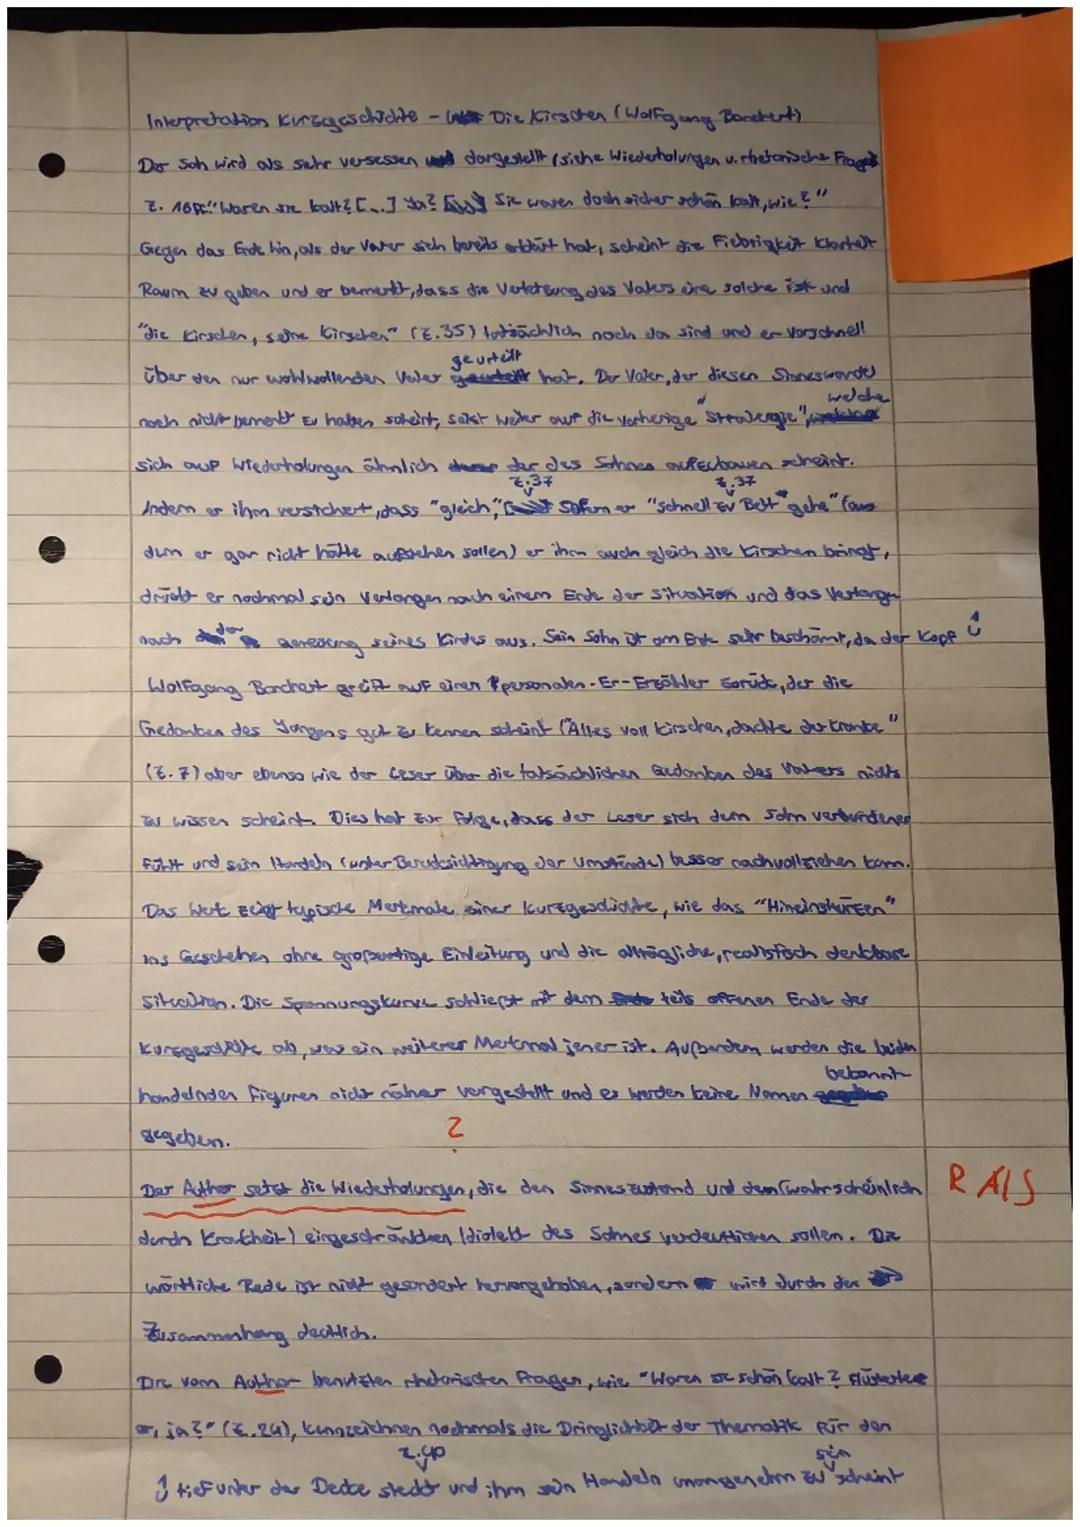 Interpretation Kurzgeschichte - Die Kirschen (Wolfgang Borchert)
Der Sohn wird als sehr versessen dargestellt (siehe Wiederholungen u. rhetorische Fragen
Z. 18ff. "Waren sie kalt? [...] Ja? Sie waren doch sicher schön kalt, wie?"
Gegen das Ende hin, als der Vater sich bereits erklärt hat, scheint die Fiebrigkeit Klarheit
Raum zu geben und er bemerkt, dass die Verletzung des Vaters eine solche ist und
"die Kirschen, seine Kirschen" (Z.35) tatsächlich noch da sind und er vorschnell
geurteilt
über den nur wohlwollenden Vater hat. Der Vater, der diesen Sinneswandel
welche
noch nicht bemerkt zu haben scheint, setzt weiter auf die vorherige "Strategie",
sich auf Wiederholungen ähnlich der des Sohnes aufzubauen scheint.
Z.37 Z.37
Indem er ihm versichert, dass "gleich," sofern er "schnell zu Bett" gehe" (aus
dem er gar nicht hätte aufstehen sollen) er ihm auch gleich die Kirschen bringt,
drückt er nochmal sein Verlangen nach einem Ende der Situation und das Verlangen
nach der Genesung seines Kindes aus. Sein Sohn ist am Ende sehr beschämt, da der Kopf
Wolfgang Borchert greift auf einen personalen-Er-Erzähler zurück, der die
Gedanken des Jungens gut zu kennen scheint ("Alles voll Kirschen, dachte der Kranke"
(Z.7) aber ebenso wie der Leser über die tatsächlichen Gedanken des Vaters nichts
zu wissen scheint. Dies hat zur Folge, dass der Leser sich dem Sohn verbundener
fühlt und sein Handeln (unter Berücksichtigung der Umstände) besser nachvollziehen kann.
Das Werk zeigt typische Merkmale einer Kurzgeschichte, wie das "Hineinstürzen"
ins Geschehen ohne großartige Einleitung und die alltägliche, realistisch denkbare
Situation. Die Spannungskurve schließt mit dem teils offenen Ende der
Kurzgeschichte ab, was ein weiteres Merkmal jener ist. Außerdem werden die beiden
bekannt
handelnden Figuren nicht näher vorgestellt und es werden keine Namen
gegeben.
?
Der Author setzt die Wiederholungen, die den Sinneszustand und dem (wahrscheinlich R A/S
durch Krankheit) eingeschränkten Idiolekt des Sohnes verdeutlichen sollen. Die
wörtliche Rede ist nicht gesondert hervorgehoben, sondern wird durch den
Zusammenhang deutlich.
Die vom Author benutzten rhetorischen Fragen, wie "Waren sie schön kalt? flüsterte
er, ja?" (Z.24), kennzeichnen nochmals die Dringlichkeit der Thematik für den
Z.40 sein
tief unter der Decke steckt und ihm sein Handeln unangenehm zu scheint